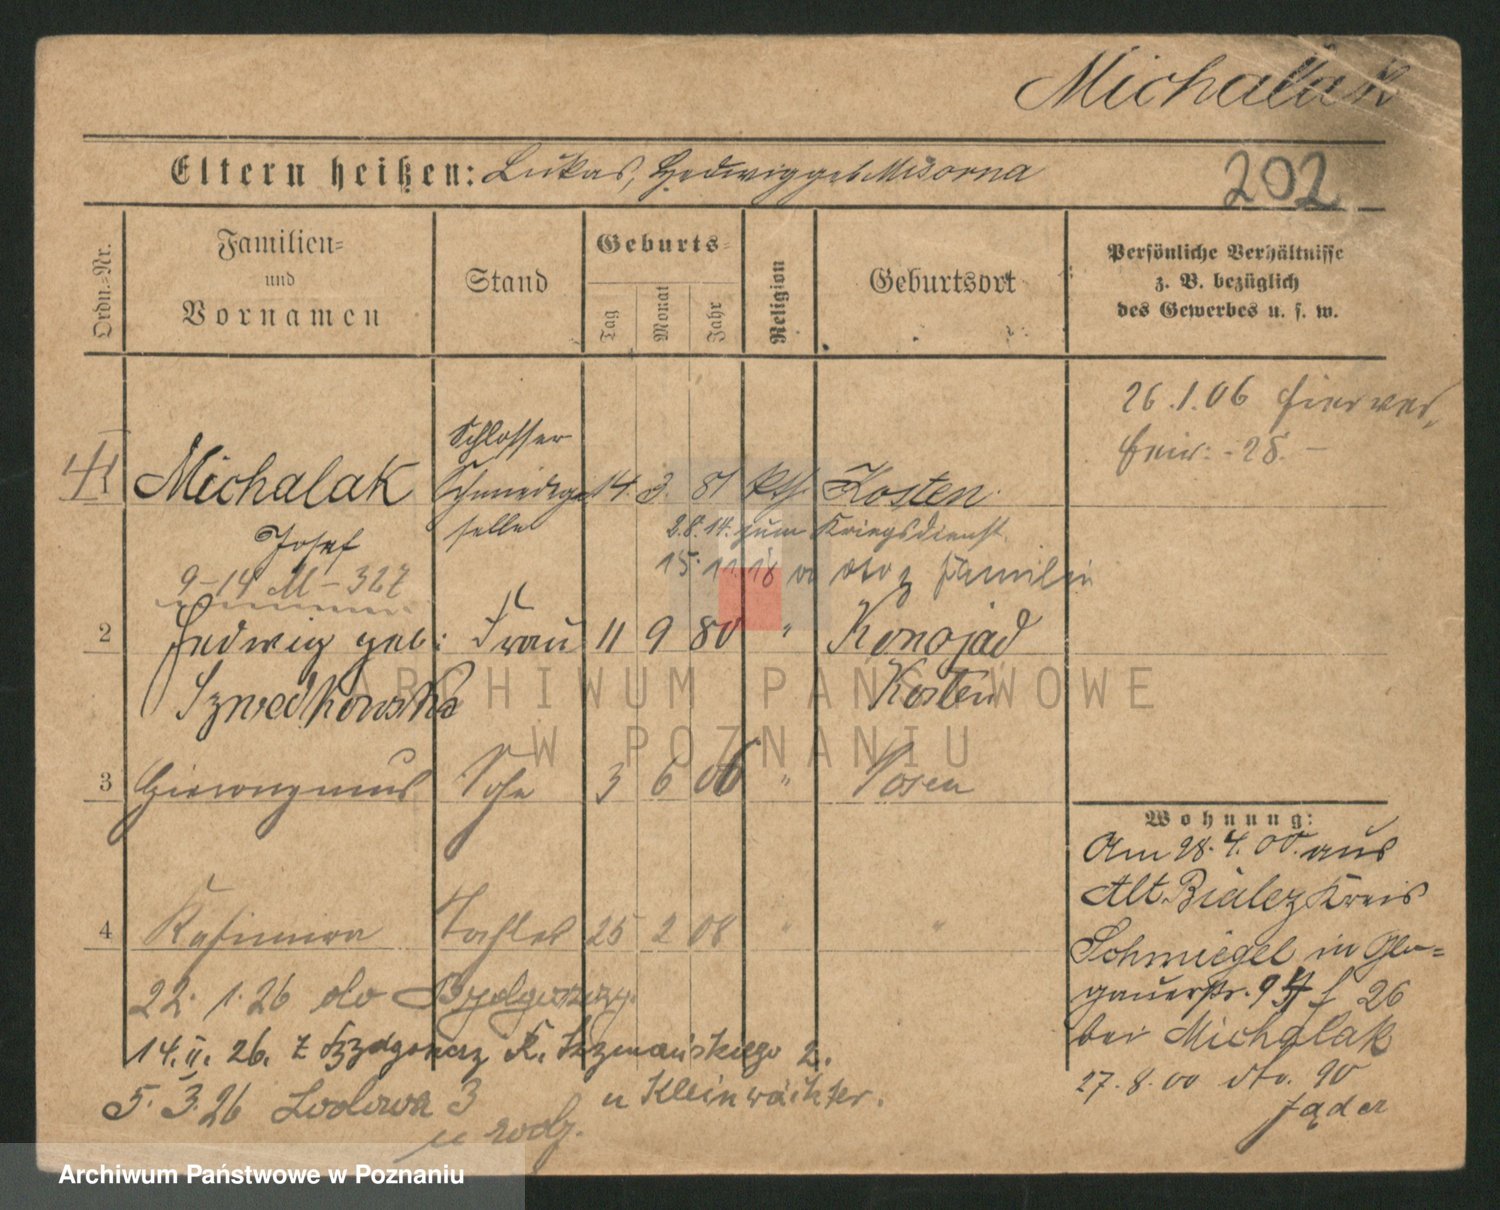 Michalak
Eltern heißen: Lukas, Hedwig geb. Misorna
202
Ordn.-Nr.
Familien-
und
Vornamen
Stand
Geburts-
Tag
Monat
Jahr
Religion
Geburtsort
Persönliche Verhältnisse
z. B. bezüglich
des Gewerbes u. s. w.
26.1.06
28.-
Schlosser
Michalak Schmiedege 14. 3. 81 kth. Kosten
selle
Josef
28.14. zum Kriegsdienst
15.11.18 Familie
9-14 M-327
2 Hedwig geb: Frau 11 9 80 " Konojad
Szwedkowska Kosten
3 Hieronymus Sohn 3 6 06 " Posen
4 Kasimira Tochter 25 2 08 " "
Wohnung:
Am 28.4.00. aus
Alt. Bialez Kreis
Schmiegel in Glo-
gauerstr. 94 f 26
bei Michalak
27.8.00 dto. 90
22. 1. 26 do Bydgoszczy.
14. II. 26. z Bydgoszcz K. Szymańskiego 2.
u Kleinwächter.
5. 3. 26 Lodowa 3
u rodz.
ARCHIWUM PAŃSTWOWE
W POZNANIU
Archiwum Państwowe w Poznaniu